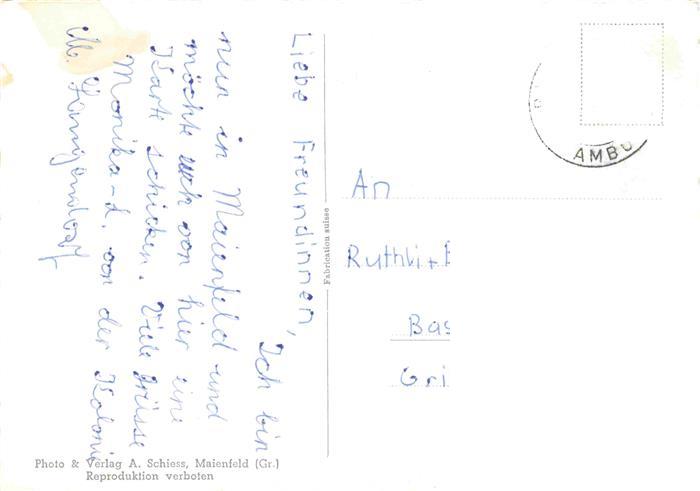 Liebe Freundinnen,
Ich bin
nun in Maienfeld und
möchte euch von hier eine
Karte schicken. Viele Grüsse
Monika-d. von der Kolonie
Fabrication suisse
AMBU
An
Ruthli +
Bas
Gri
Photo & Verlag A. Schiess, Maienfeld (Gr.)
Reproduktion verboten